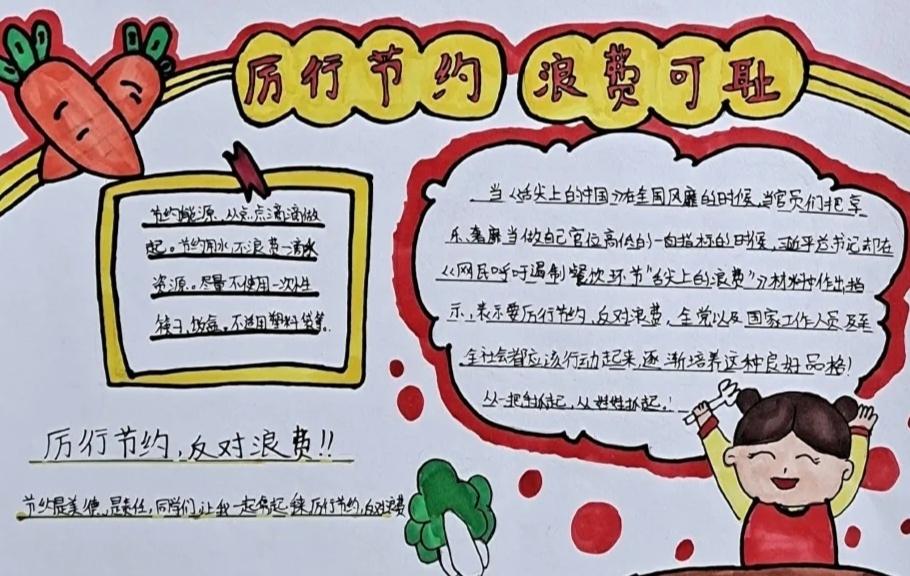 厉行节约 浪费可耻
节约能源、从点点滴滴做
起。节约用水,不浪费一滴水
资源。尽量不使用一次性
筷子,饭盒,不适用塑料袋等。
当《舌尖上的中国》在全国风靡的时候,当官员们把享
乐、奢靡当做自己官位高低的一向指标的时候,习近平总书记却在
《网民呼吁遏制餐饮环节“舌尖上的浪费”》材料中作出指
示,表示要厉行节约,反对浪费,全党以及国家工作人员及至
全社会都应该行动起来,逐渐培养这种良好品格!
从一把手抓起,从娃娃抓起!
厉行节约,反对浪费!!
节约是美德,是责任,同学们,让我一起来厉行节约,反对浪费